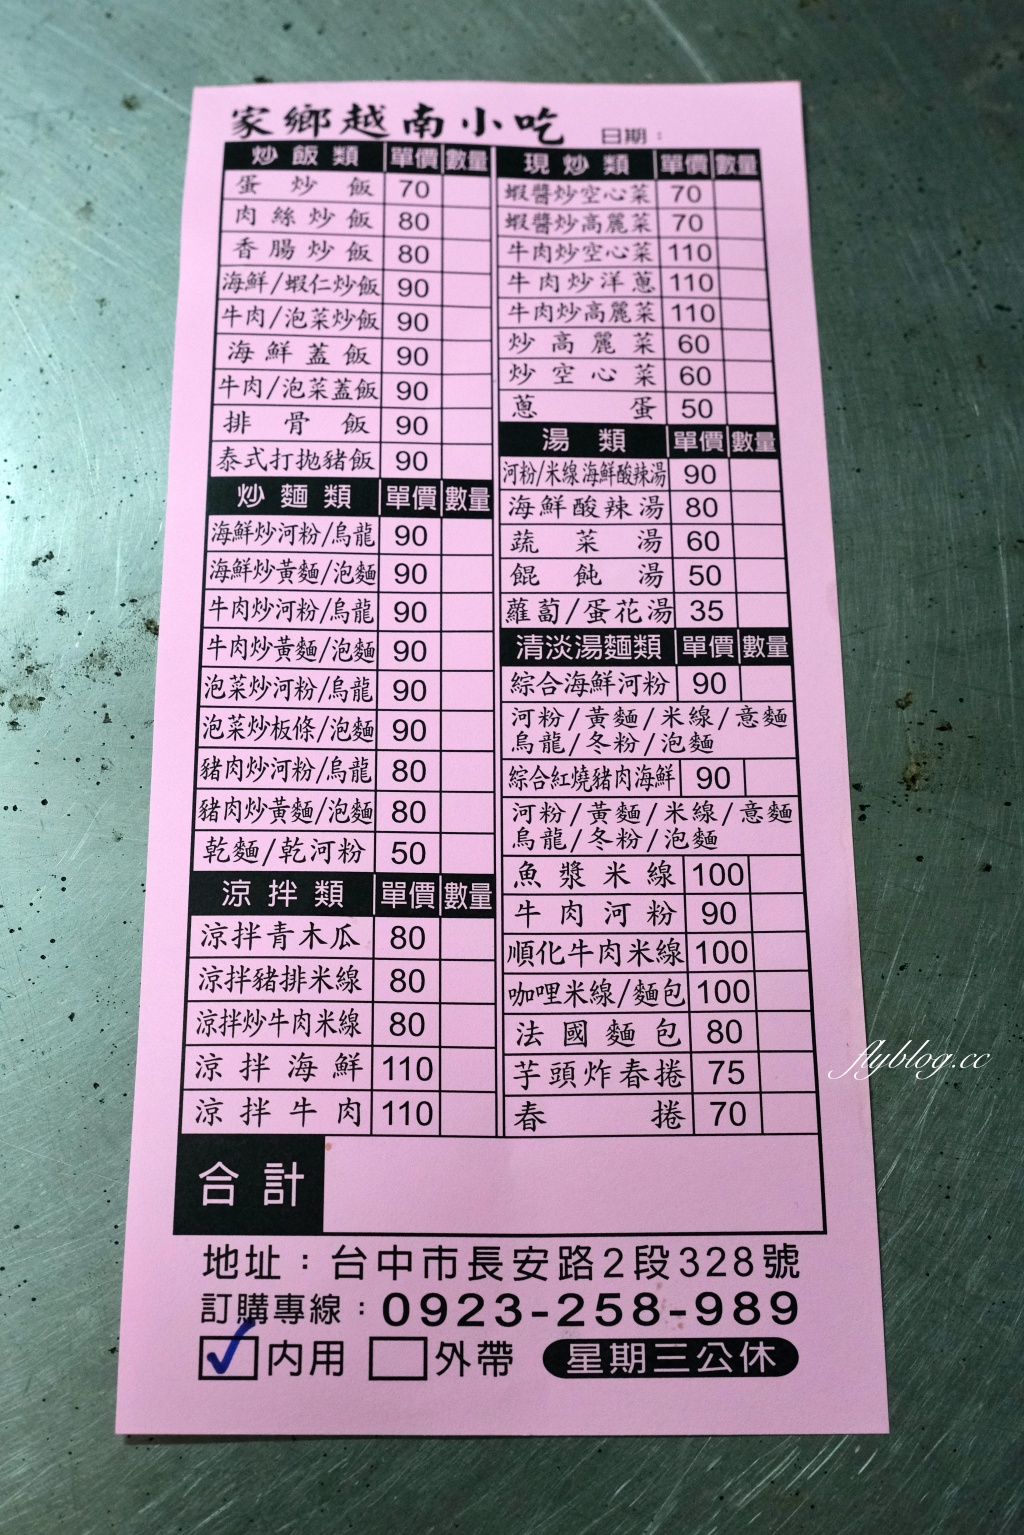 家鄉越南小吃 日期：
炒飯類 單價 數量
蛋炒飯 70
肉絲炒飯 80
香腸炒飯 80
海鮮/蝦仁炒飯 90
牛肉/泡菜炒飯 90
海鮮蓋飯 90
牛肉/泡菜蓋飯 90
排骨飯 90
泰式打拋豬飯 90
炒麵類 單價 數量
海鮮炒河粉/烏龍 90
海鮮炒黃麵/泡麵 90
牛肉炒河粉/烏龍 90
牛肉炒黃麵/泡麵 90
泡菜炒河粉/烏龍 90
泡菜炒板條/泡麵 90
豬肉炒河粉/烏龍 80
豬肉炒黃麵/泡麵 80
乾麵/乾河粉 50
涼拌類 單價 數量
涼拌青木瓜 80
涼拌豬排米線 80
涼拌炒牛肉米線 80
涼拌海鮮 110
涼拌牛肉 110
現炒類 單價 數量
蝦醬炒空心菜 70
蝦醬炒高麗菜 70
牛肉炒空心菜 110
牛肉炒洋蔥 110
牛肉炒高麗菜 110
炒高麗菜 60
炒空心菜 60
蔥蛋 50
湯類 單價 數量
河粉/米線海鮮酸辣湯 90
海鮮酸辣湯 80
蔬菜湯 60
餛飩湯 50
蘿蔔/蛋花湯 35
清淡湯麵類 單價 數量
綜合海鮮河粉 90
河粉/黃麵/米線/意麵
烏龍/冬粉/泡麵
綜合紅燒豬肉海鮮 90
河粉/黃麵/米線/意麵
烏龍/冬粉/泡麵
魚漿米線 100
牛肉河粉 90
順化牛肉米線 100
咖哩米線/麵包 100
法國麵包 80
芋頭炸春捲 75
春捲 70
合計
地址：台中市長安路2段328號
訂購專線：0923-258-989
內用 外帶 星期三公休
flyblog.cc